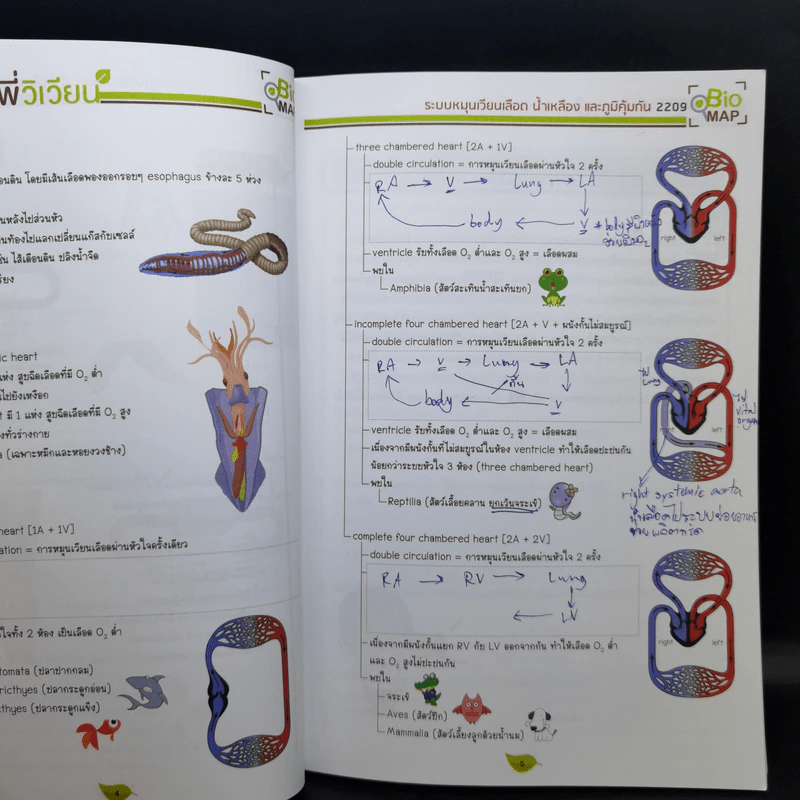 พี่วิเวียน
Bio
MAP
อนดิน โดยมีเส้นเลือดพองออกรอบๆ esophagus ข้างละ 5 ห่วง
นหลังไปส่วนหัว
นท้องไปแลกเปลี่ยนแก๊สกับเซลล์
ช่น ไส้เดือนดิน ปลิงน้ำจืด
รียง
ic heart
แห่ง สูบฉีดเลือดที่มี O₂ ต่ำ
นไปยังเหงือก
t มี 1 แห่ง สูบฉีดเลือดที่มี O₂ สูง
งทั่วร่างกาย
a (เฉพาะหมึกและหอยงวงช้าง)
heart [1A + 1V]
ation = การหมุนเวียนเลือดผ่านหัวใจครั้งเดียว
ใจทั้ง 2 ห้อง เป็นเลือด O₂ ต่ำ
tomata (ปลาปากกลม)
ricthyes (ปลากระดูกอ่อน)
cthyes (ปลากระดูกแข็ง)
4
ระบบหมุนเวียนเลือด น้ำเหลือง และภูมิคุ้มกัน 2209
Bio
MAP
three chambered heart [2A + 1V]
double circulation = การหมุนเวียนเลือดผ่านหัวใจ 2 ครั้ง
RA → V → Lung → LA
body ← V
right left
ventricle รับทั้งเลือด O₂ ต่ำและ O₂ สูง = เลือดผสม
พบใน
Amphibia (สัตว์สะเทินน้ำสะเทินบก)
incomplete four chambered heart [2A + V + ผนังกั้นไม่สมบูรณ์]
double circulation = การหมุนเวียนเลือดผ่านหัวใจ 2 ครั้ง
RA → V → Lung → LA
กั้น
body ← V
ไป Lung
ไป vital organ
right left
ventricle รับทั้งเลือด O₂ ต่ำและ O₂ สูง = เลือดผสม
เนื่องจากมีผนังกั้นที่ไม่สมบูรณ์ในห้อง ventricle ทำให้เลือดปะปนกัน
น้อยกว่าระบบหัวใจ 3 ห้อง (three chambered heart)
พบใน
Reptilia (สัตว์เลื้อยคลาน ยกเว้นจระเข้)
right systemic aorta
complete four chambered heart [2A + 2V]
double circulation = การหมุนเวียนเลือดผ่านหัวใจ 2 ครั้ง
RA → RV → Lung
← LV
right left
เนื่องจากมีผนังกั้นแยก RV กับ LV ออกจากกัน ทำให้เลือด O₂ ต่ำ
และ O₂ สูงไม่ปะปนกัน
พบใน
จระเข้
Aves (สัตว์ปีก)
Mammalia (สัตว์เลี้ยงลูกด้วยน้ำนม)